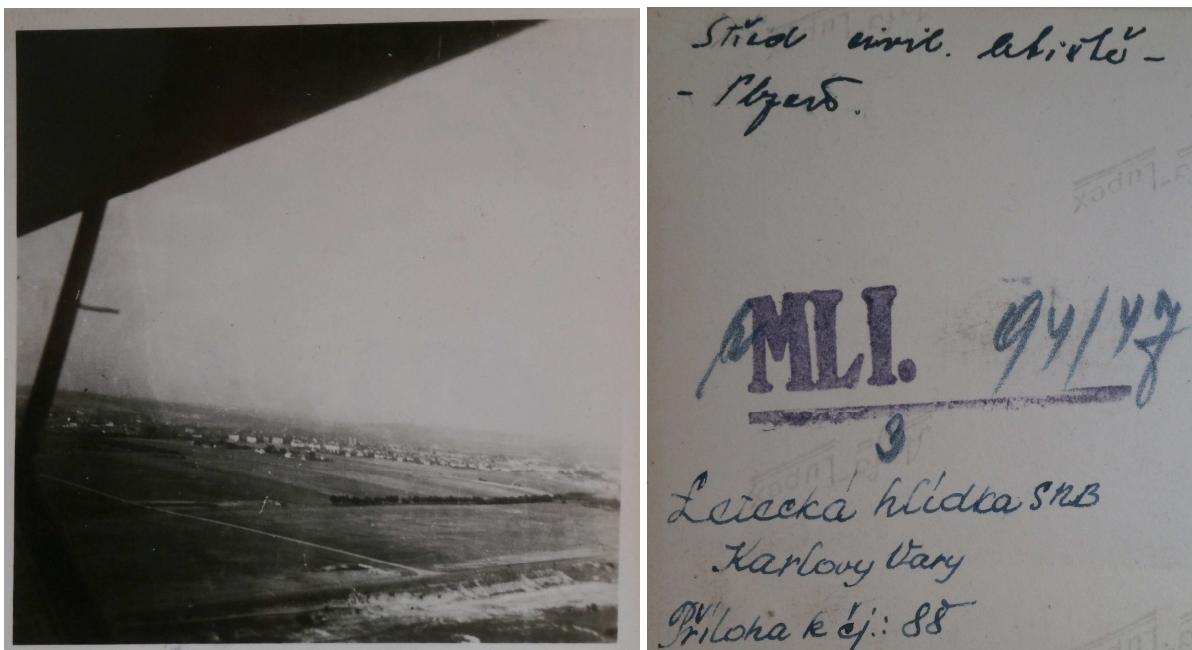 Střed civil. letiště -
- Plzeň.
MLI. 94/47
3
Letecká hlídka SNB
Karlovy Vary
Příloha k čj.: 88